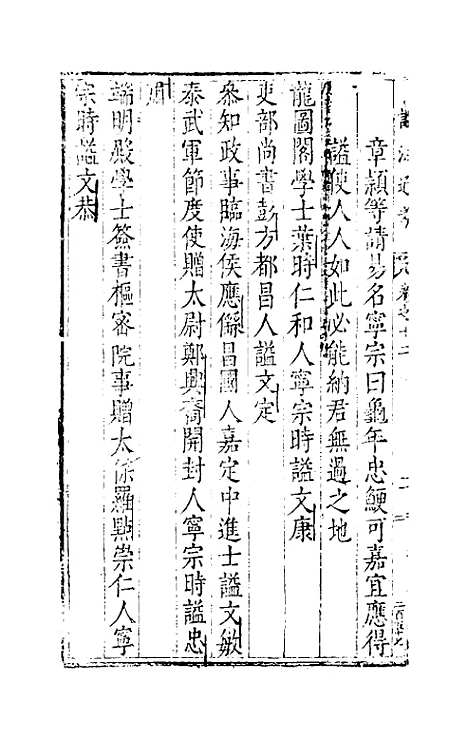 謚法通考
卷之十二
章穎等請易名寧宗曰龜年忠鯁可嘉宜應得
謚使人人如此必能納君無過之地
龍圖閣學士葉時仁和人寧宗時謚文康
吏部尚書彭方都昌人謚文定
叅知政事臨海侯應㒡昌國人嘉定中進士謚文敏
泰武軍節度使贈太尉鄭興裔開封人寧宗時謚忠
肅
端明殿學士簽書樞密院事贈太保羅點崇仁人寧
宗時謚文恭